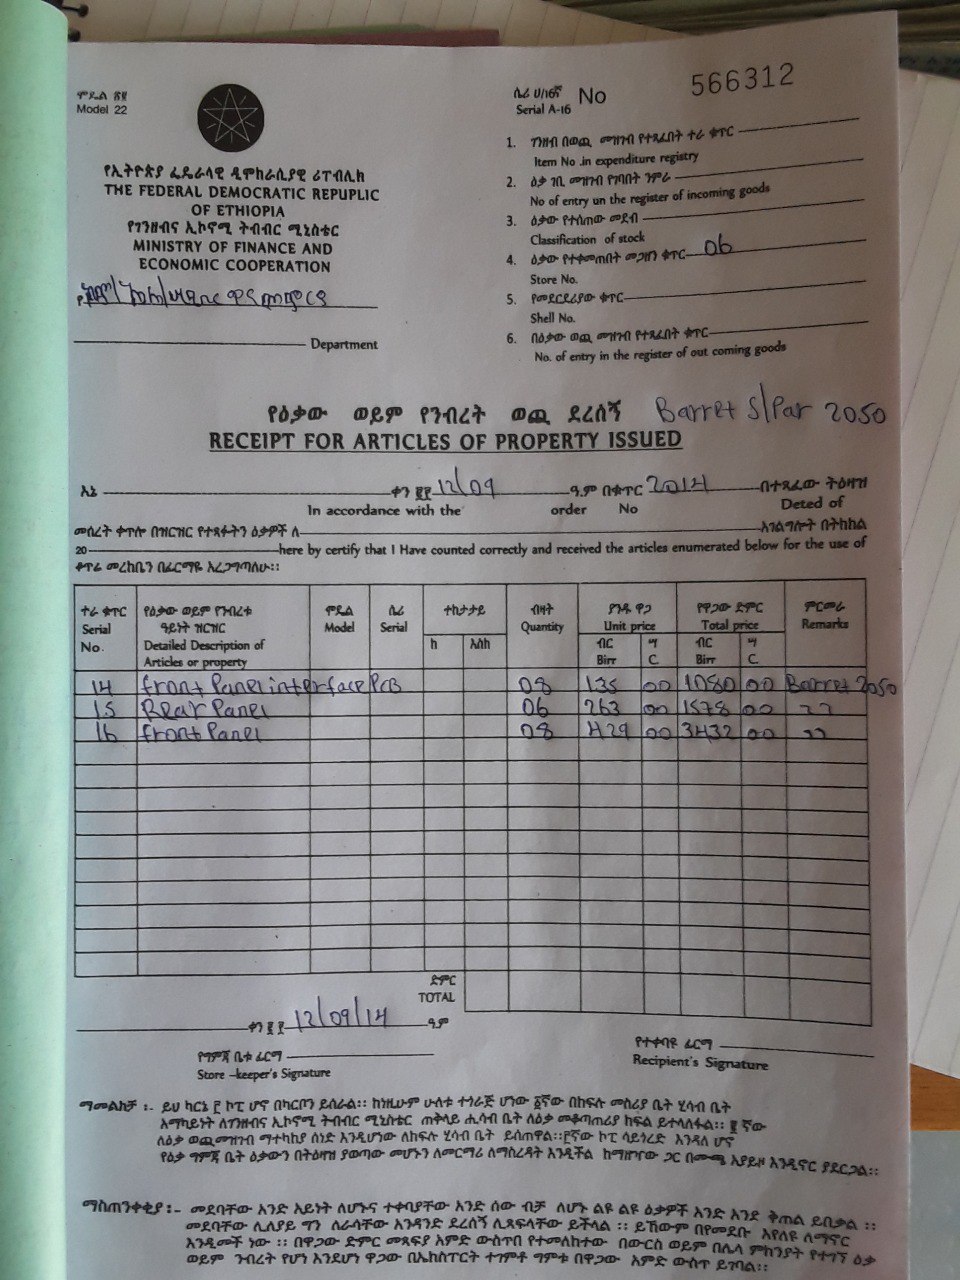 ሞዴል ፳፪
Model 22
ሴሪ ሀ/16ኛ No 566312
Serial A-16
የኢትዮጵያ ፌዴራላዊ ዲሞክራሲያዊ ሪፐብሊክ
THE FEDERAL DEMOCRATIC REPUPLIC
OF ETHIOPIA
የገንዘብና ኢኮኖሚ ትብብር ሚኒስቴር
MINISTRY OF FINANCE AND
ECONOMIC COOPERATION
Department
1. ገንዘብ በወጪ መዝገብ የተጻፈበት ተራ ቁጥር
Item No .in expenditure registry
2. ዕቃ ገቢ መዝገብ የገባበት ንምራ
No of entry un the register of incoming goods
3. ዕቃው የተሰጠው መደብ
Classification of stock
4. ዕቃው የተቀመጠበት መጋዘን ቁጥር 06
Store No.
5. የመደርደሪያው ቁጥር
Shell No.
6. በዕቃው ወጪ መዝገብ የተጻፈበት ቁጥር
No. of entry in the register of out coming goods
የዕቃው ወይም የንብረት ወጪ ደረሰኝ Barret S/Par 2050
RECEIPT FOR ARTICLES OF PROPERTY ISSUED
እኔ ቀን 12/09 ዓ.ም በቁጥር 2014 በተጻፈው ትዕዛዝ
In accordance with the order No Deted of
መሰረት ቀጥሎ በዝርዝር የተጻፉትን ዕቃዎች ለ አገልግሎት በትክክል
20 here by certify that I Have counted correctly and received the articles enumerated below for the use of
ቆጥሬ መረከቤን በፊርማዬ አረጋግጣለሁ፡፡
ተራ ቁጥር የዕቃው ወይም የንብረቱ ሞዴል ሴሪ ተከታታይ ብዛት ያንዱ ዋጋ የዋጋው ድምር ምርመራ
Serial ዓይነት ዝርዝር Model Serial Quantity Unit price Total price Remarks
No. Detailed Description of ከ እስከ ብር ሣ ብር ሣ
Articles or property Birr C. Birr C.
14 front Panel interface PCB 08 135 00 1080 00 Barret 2050
15 Rear Panel 06 263 00 1578 00 ,,
16 front Panel 08 429 00 3432 00 ,,
ድምር
TOTAL
ቀን 12/09/14 ዓ.ም
የግምጃ ቤቱ ፊርማ የተቀባዩ ፊርማ
Store -keeper's Signature Recipient's Signature
ማመልከቻ ፡- ይህ ካርኒ ፫ ኮፒ ሆኖ በካርቦን ይሰራል፡፡ ከነዚሁም ሁለቱ ተጎራጅ ሆነው ፩ኛው በከፍሉ መስሪያ ቤት ሂሳብ ቤት
አማካይነት ለገንዘብና ኢኮኖሚ ትብብር ሚኒስቴር ጠቅላይ ሒሳብ ቤት ለዕቃ መቆጣጠሪያ ክፍል ይተላለፋል፡፡ ፪ ኛው
ለዕቃ ወጪመዝገብ ማተካከያ ሰነድ እንዲሆነው ለክፍሉ ሂሳብ ቤት ይሰጠዋል፡፡፫ኛው ኮፒ ሳይጎረድ እንዳለ ሆኖ
የዕቃ ግምጃ ቤት ዕቃውን በትዕዛዝ ያወጣው መሆኑን ለመርማሪ ለማስረዳት እንዲችል ከማዘዣው ጋር በመጫ እያይዞ እንዲኖር ያደርጋል፡፡
ማስጠንቀቂያ ፡- መደባቸው አንድ አይነት ለሆኑና ተቀባያቸው አንድ ሰው ብቻ ለሆኑ ልዩ ልዩ ዕቃዎች አንድ አንደ ቅጠል ይበቃል ፡፡
መደባቸው ሲለያይ ግን ለራሳቸው አንዳንድ ደረሰኝ ሊጻፍላቸው ይችላል ፡፡ ይኸውም በየመደቡ እየለዩ ለማኖር
እንዲመች ነው ፡፡ በዋጋው ድምር መጻፊያ አምድ ውስጥ የተመለከተው በውርስ ወይም በሌላ ምክንያት የተገኝ ዕቃ
ወይም ንብረት የሆነ እንደሆነ ዋጋው በኤክስፐርት ተገምቶ ግምቱ በዋጋው አምድ ውስጥ ይገባል፡፡